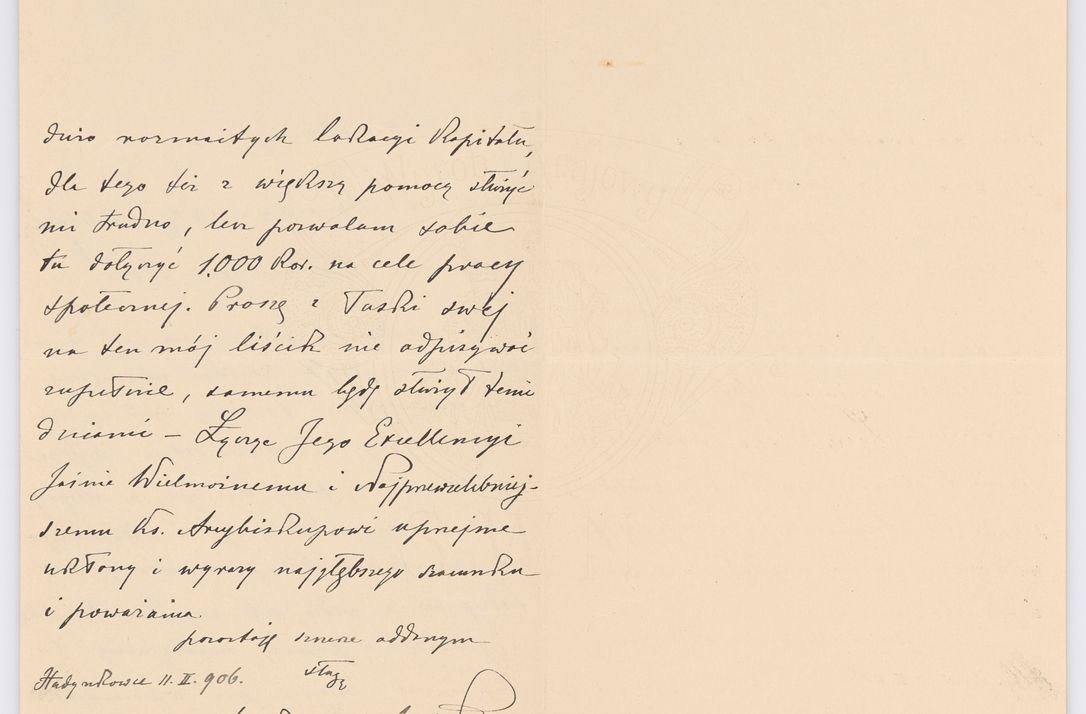 dużo rozmaitych lokacyi Kapitału,
dla tego też z większą pomocą służyć
mi trudno, lecz pozwalam sobie
tu dołączyć 1.000 Kor. na cele pracy
społecznej. Proszę z Łaski swej
na ten mój liścik nie odpisywać
zupełnie, samemu będę służył temi
dniami – Łączę Jego Excellencyi
Jaśnie Wielmożnemu i Najprzewielebniej-
szemu Ks. Arcybiskupowi uprzejme
ukłony i wyrazy najgłębszego szacunku
i poważania
pozostaję szczerze oddanym
sługą
Hadynkowce 11. II. 906.